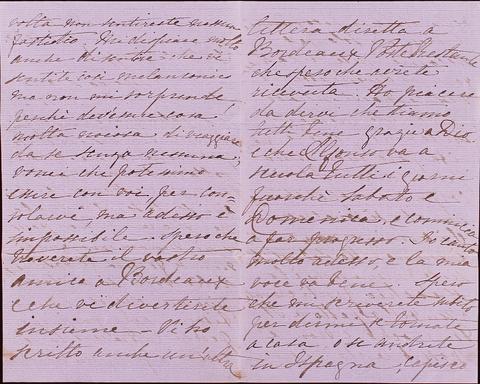 volta non sentireste nessun
fastidio. Mi dispiace molto
anche di sentire che vi
sentite così melanconico
ma non mi sorprende,
perchè dev'essere cosa
molta noiosa di viaggiare
da se senza nessuno,
vorrei che potessimo
essere con voi per con-
solarvi, ma adesso è
impossibile. Spero che
troverete il vostro
amico a Bordeaux
e che vi divertirete
insieme - Vi ho
scritto anche un'altra
lettera diretta a
Bordeaux, Poste Restante
che spero che avrete
ricevuta. Ho piacere
da dirvi che stiamo
tutti bene grazie a Dio
e che Alfonso va a
scuola tutti i giorni
fuorchè Sabato e
Domenica, e comincia
a far progresso. Io canto
molto adesso, e la mia
voce va bene. Spero
che mi scriverete subito
per dirmi se tornate
a casa o se andrete
in Ispagna, capisco